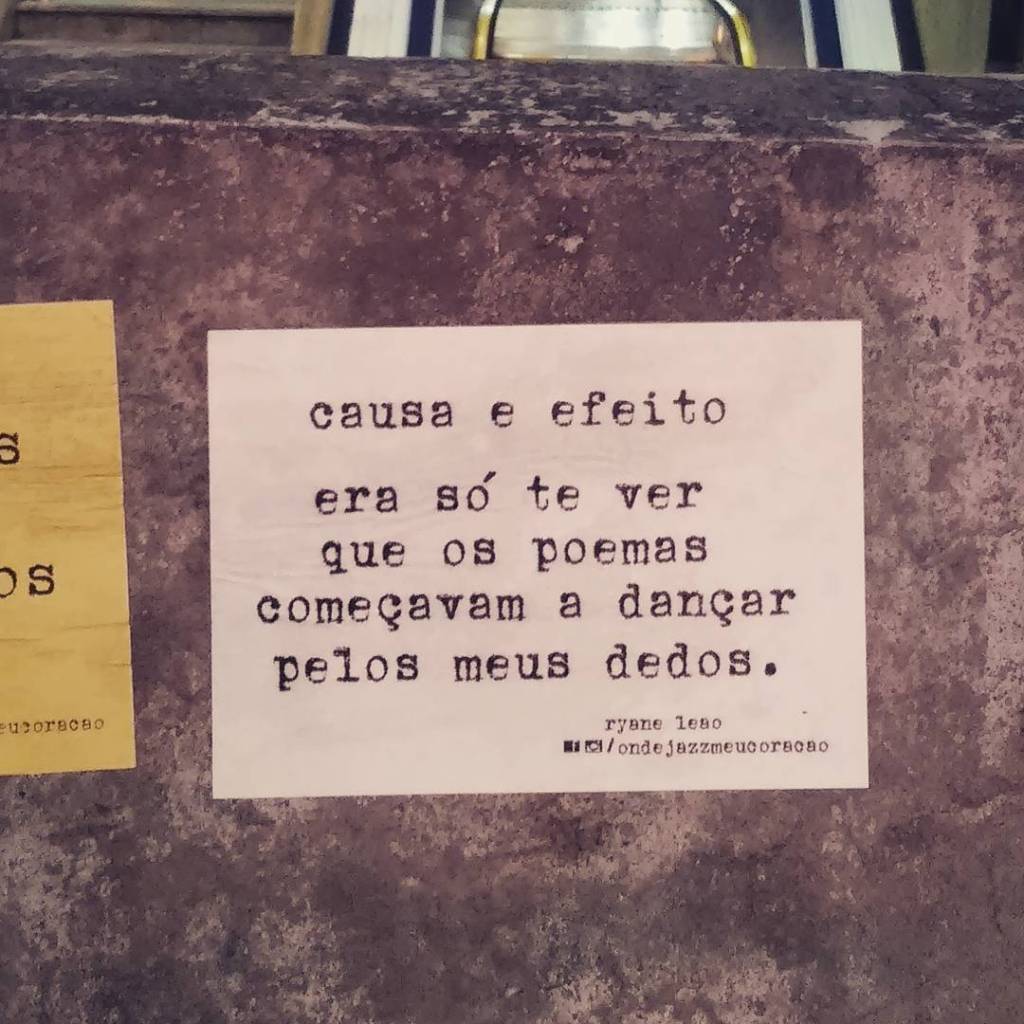 causa e efeito
era só te ver
que os poemas
começavam a dançar
pelos meus dedos.
ryane leao
/ondejazzmeucoracao
s
os
eucoracao